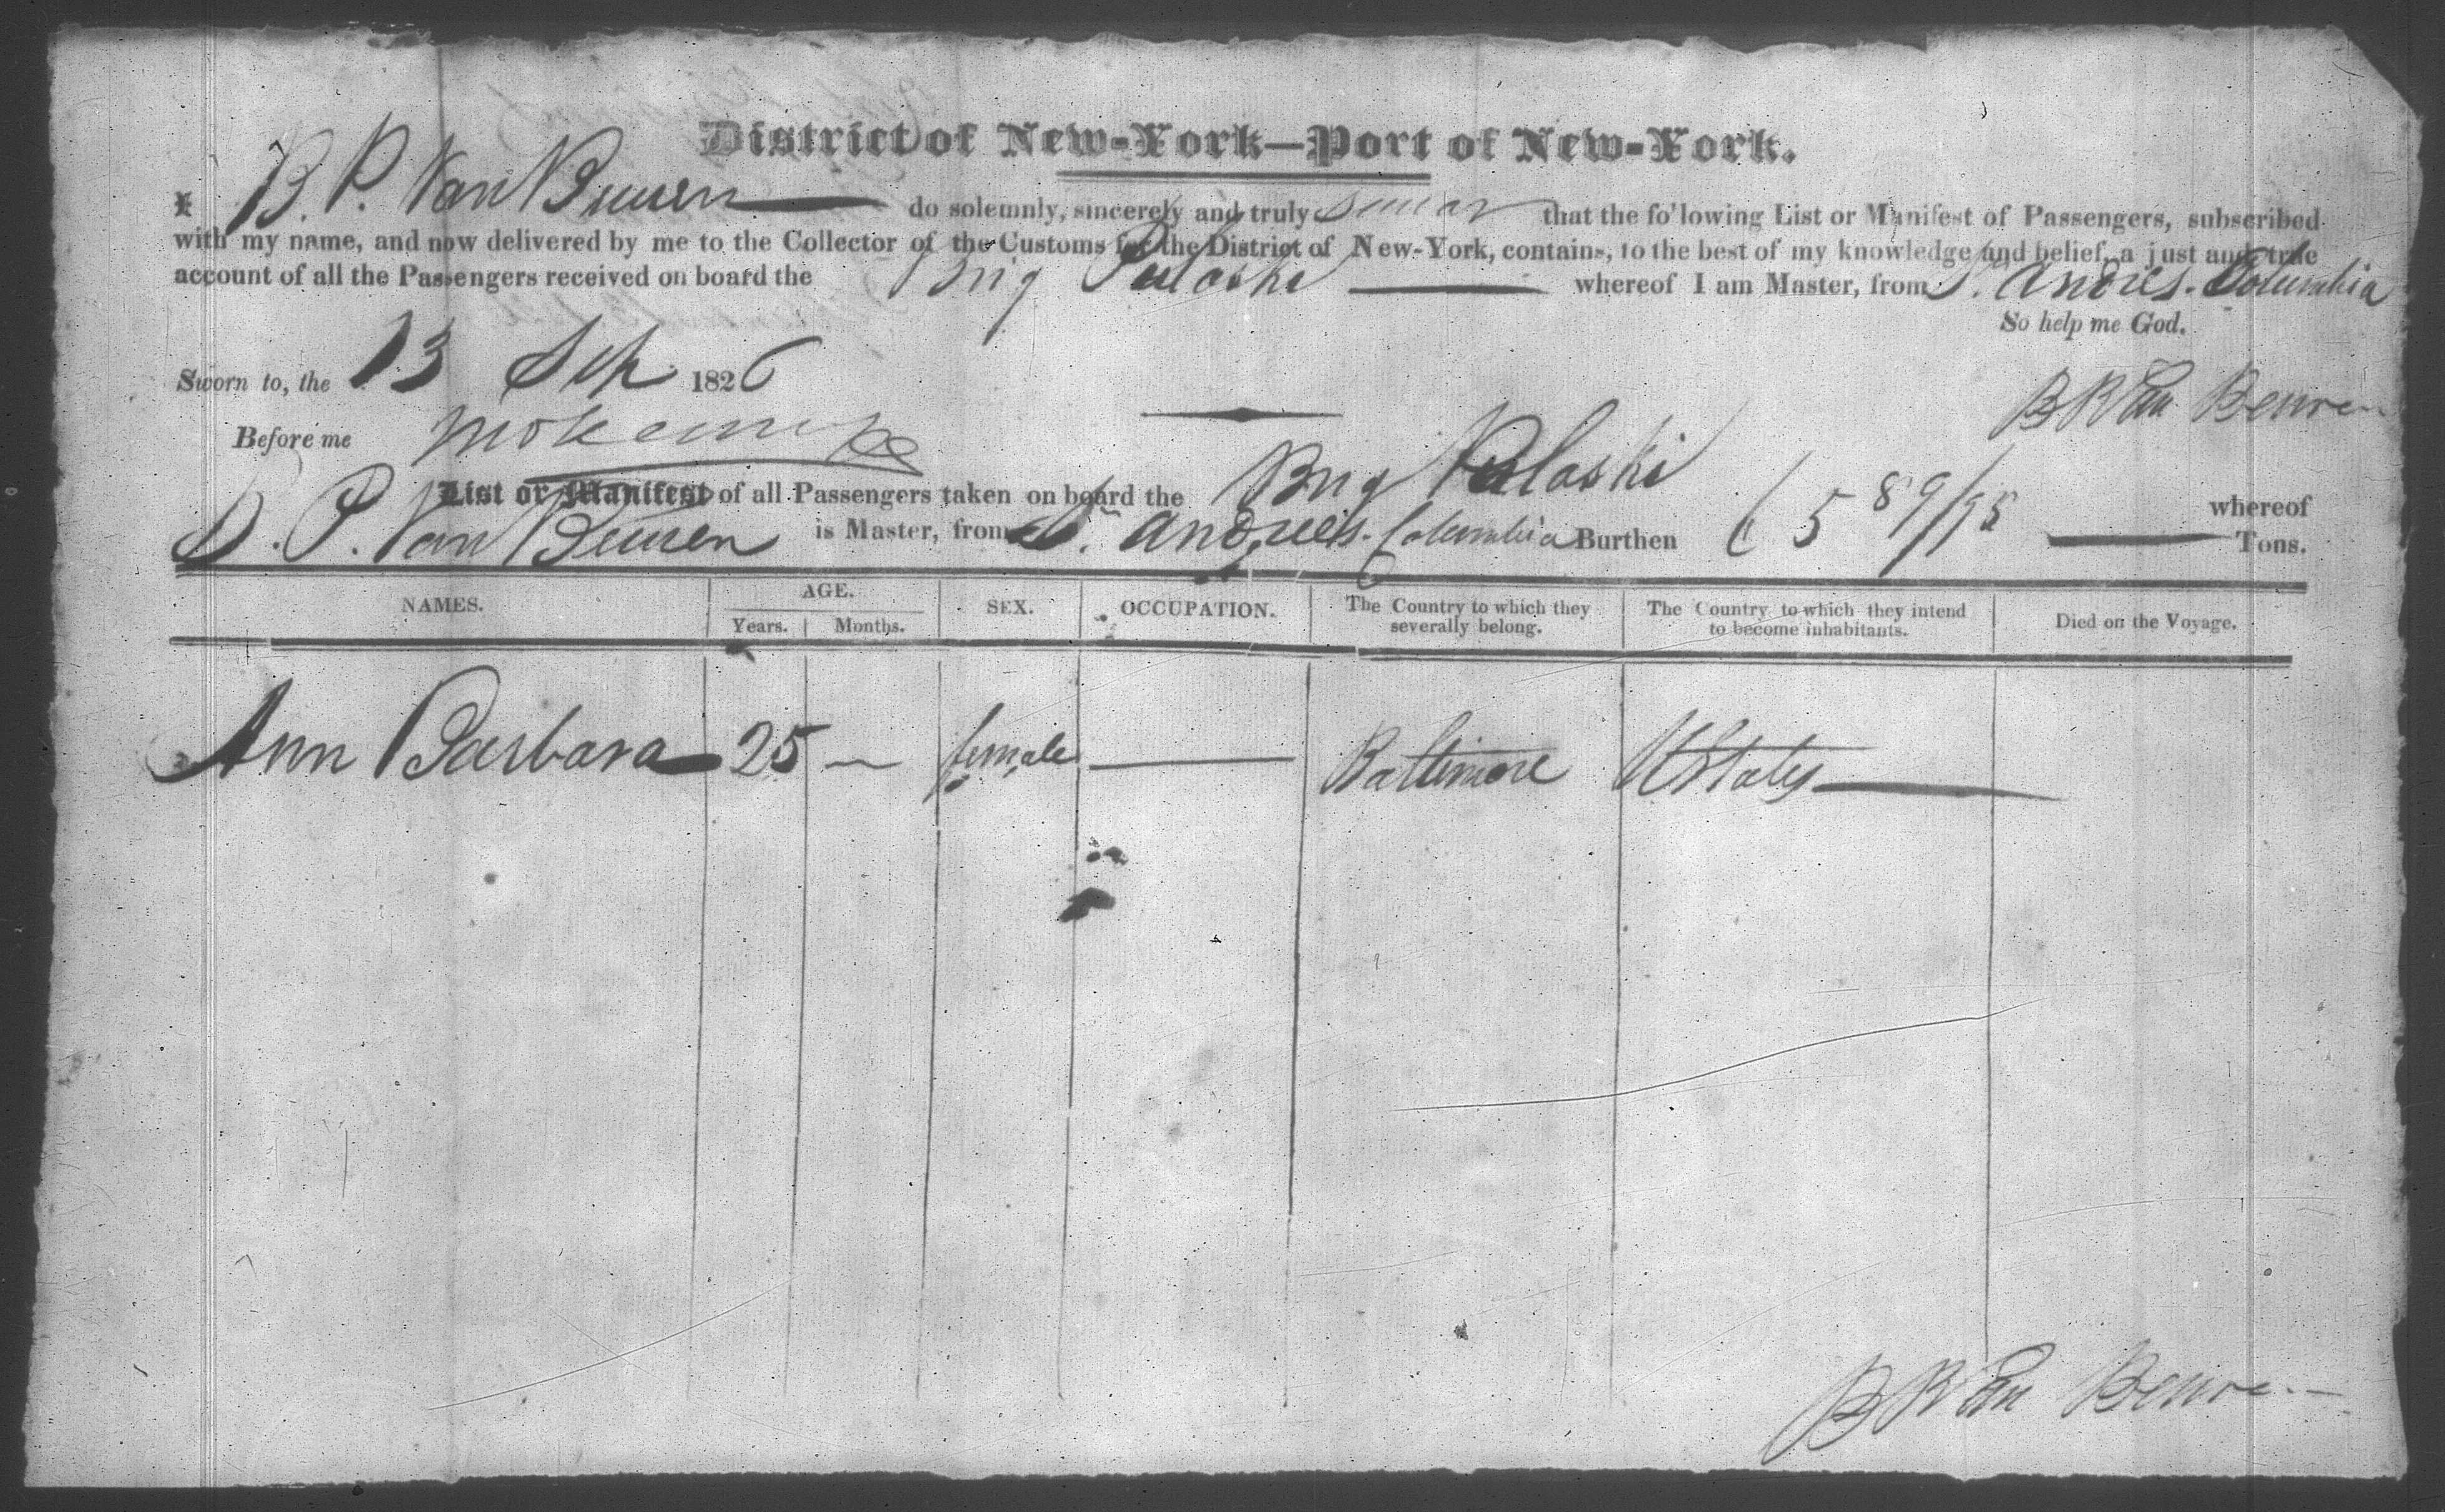 District of New-York—Port of New-York.
I B. P. Van Buuren do solemnly, sincerely and truly swear that the following List or Manifest of Passengers, subscribed
with my name, and now delivered by me to the Collector of the Customs for the District of New-York, contains, to the best of my knowledge and belief, a just and true
account of all the Passengers received on board the Brig Pulaski whereof I am Master, from St. Andres. Columbia
So help me God.
Sworn to, the 13 Sep 1826
B P Van Beuren
Before me
List or Manifest of all Passengers taken on board the Brig Pulaski whereof
B. P. Van Buuren is Master, from St. Andrees. Columbia Burthen 89/95 Tons.
NAMES. AGE. SEX. OCCUPATION. The Country to which they severally belong. The Country to which they intend to become inhabitants. Died on the Voyage.
Years. Months.
Ann Barbara 25 — female — Baltimore UStates
B P Van Beuren